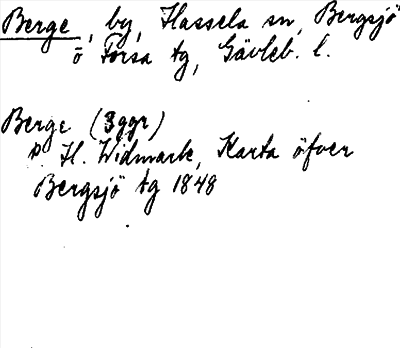 Berge, by, Hassela sn, Bergsjö
o Forsa tg, Gävleb. l.
Berge (3ggr)
P. H. Widmark, Karta öfver
Bergsjö tg 1848